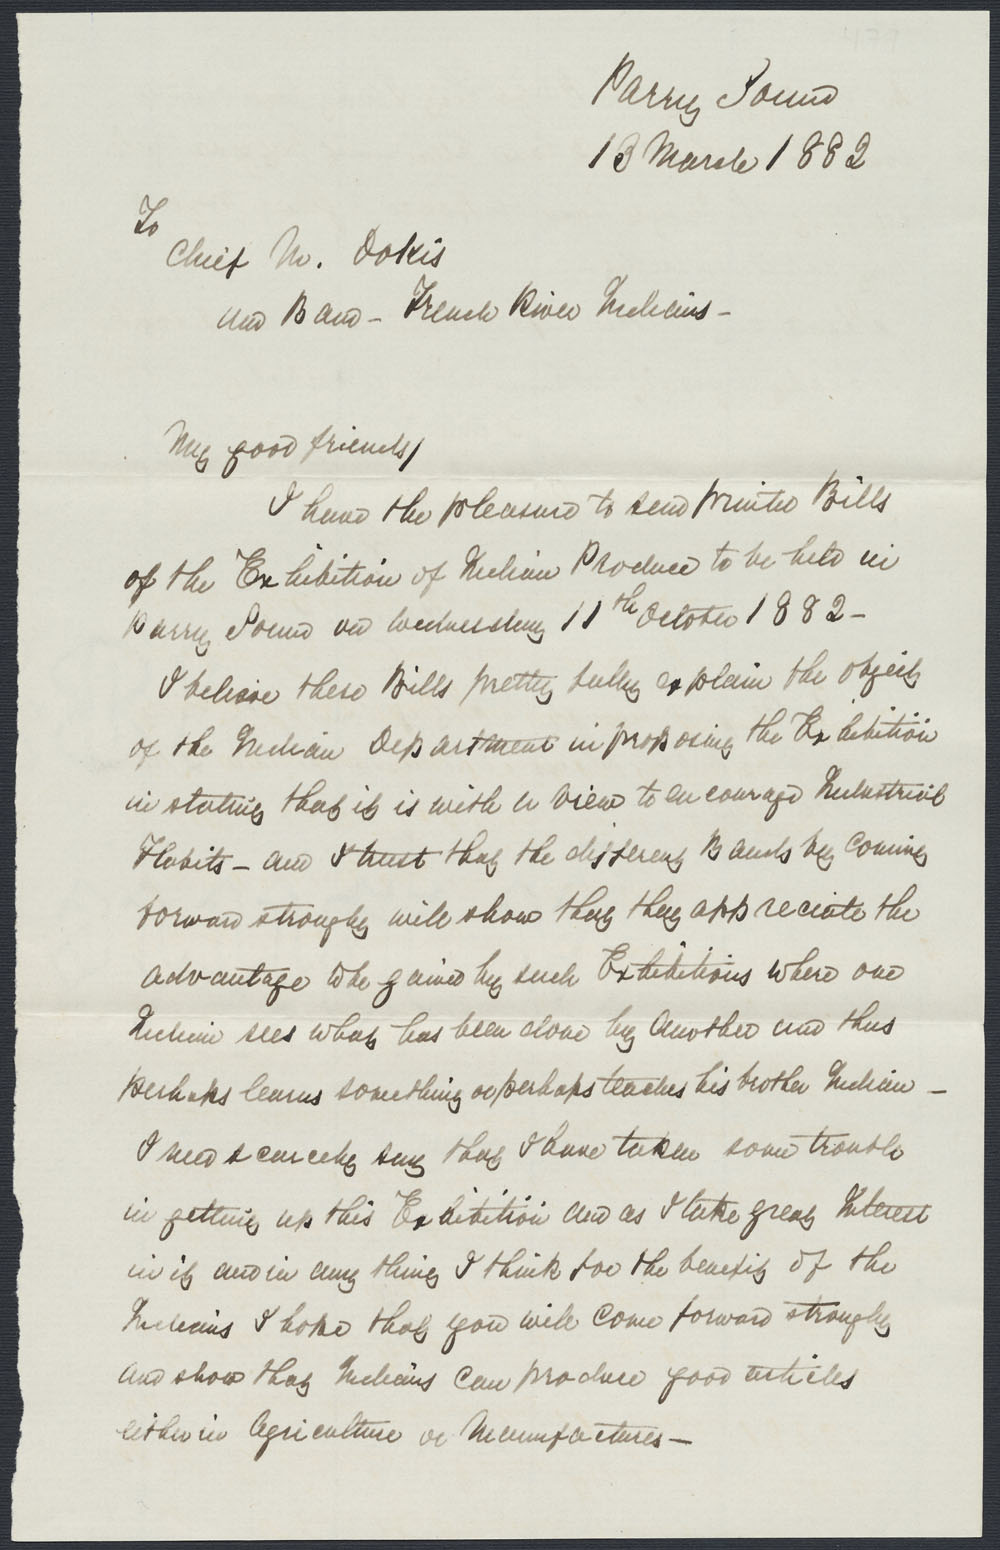 Parry Sound
13 March 1882
To
Chief M. Dokis
and Band - French River Indians -
My good friends,
I have the pleasure to send printed Bills
of the Exhibition of Indian Produce to be held in
Parry Sound on Wednesday 11th October 1882 -
I believe these Bills pretty fully explain the objects
of the Indian Department in proposing the Exhibition
in stating that it is with a view to encourage Industrial
Habits - and I trust that the different Bands by coming
forward strongly will show that they appreciate the
advantage to be gained by such Exhibitions where one
Indian sees what has been done by another and thus
perhaps learns something or perhaps teaches his brother Indian -
I need scarcely say that I have taken some trouble
in getting up this Exhibition and as I take great Interest
in it and in any thing I think for the benefit of the
Indians I hope that you will come forward strongly
and show that Indians can produce good articles
either in Agriculture or Manufactures -